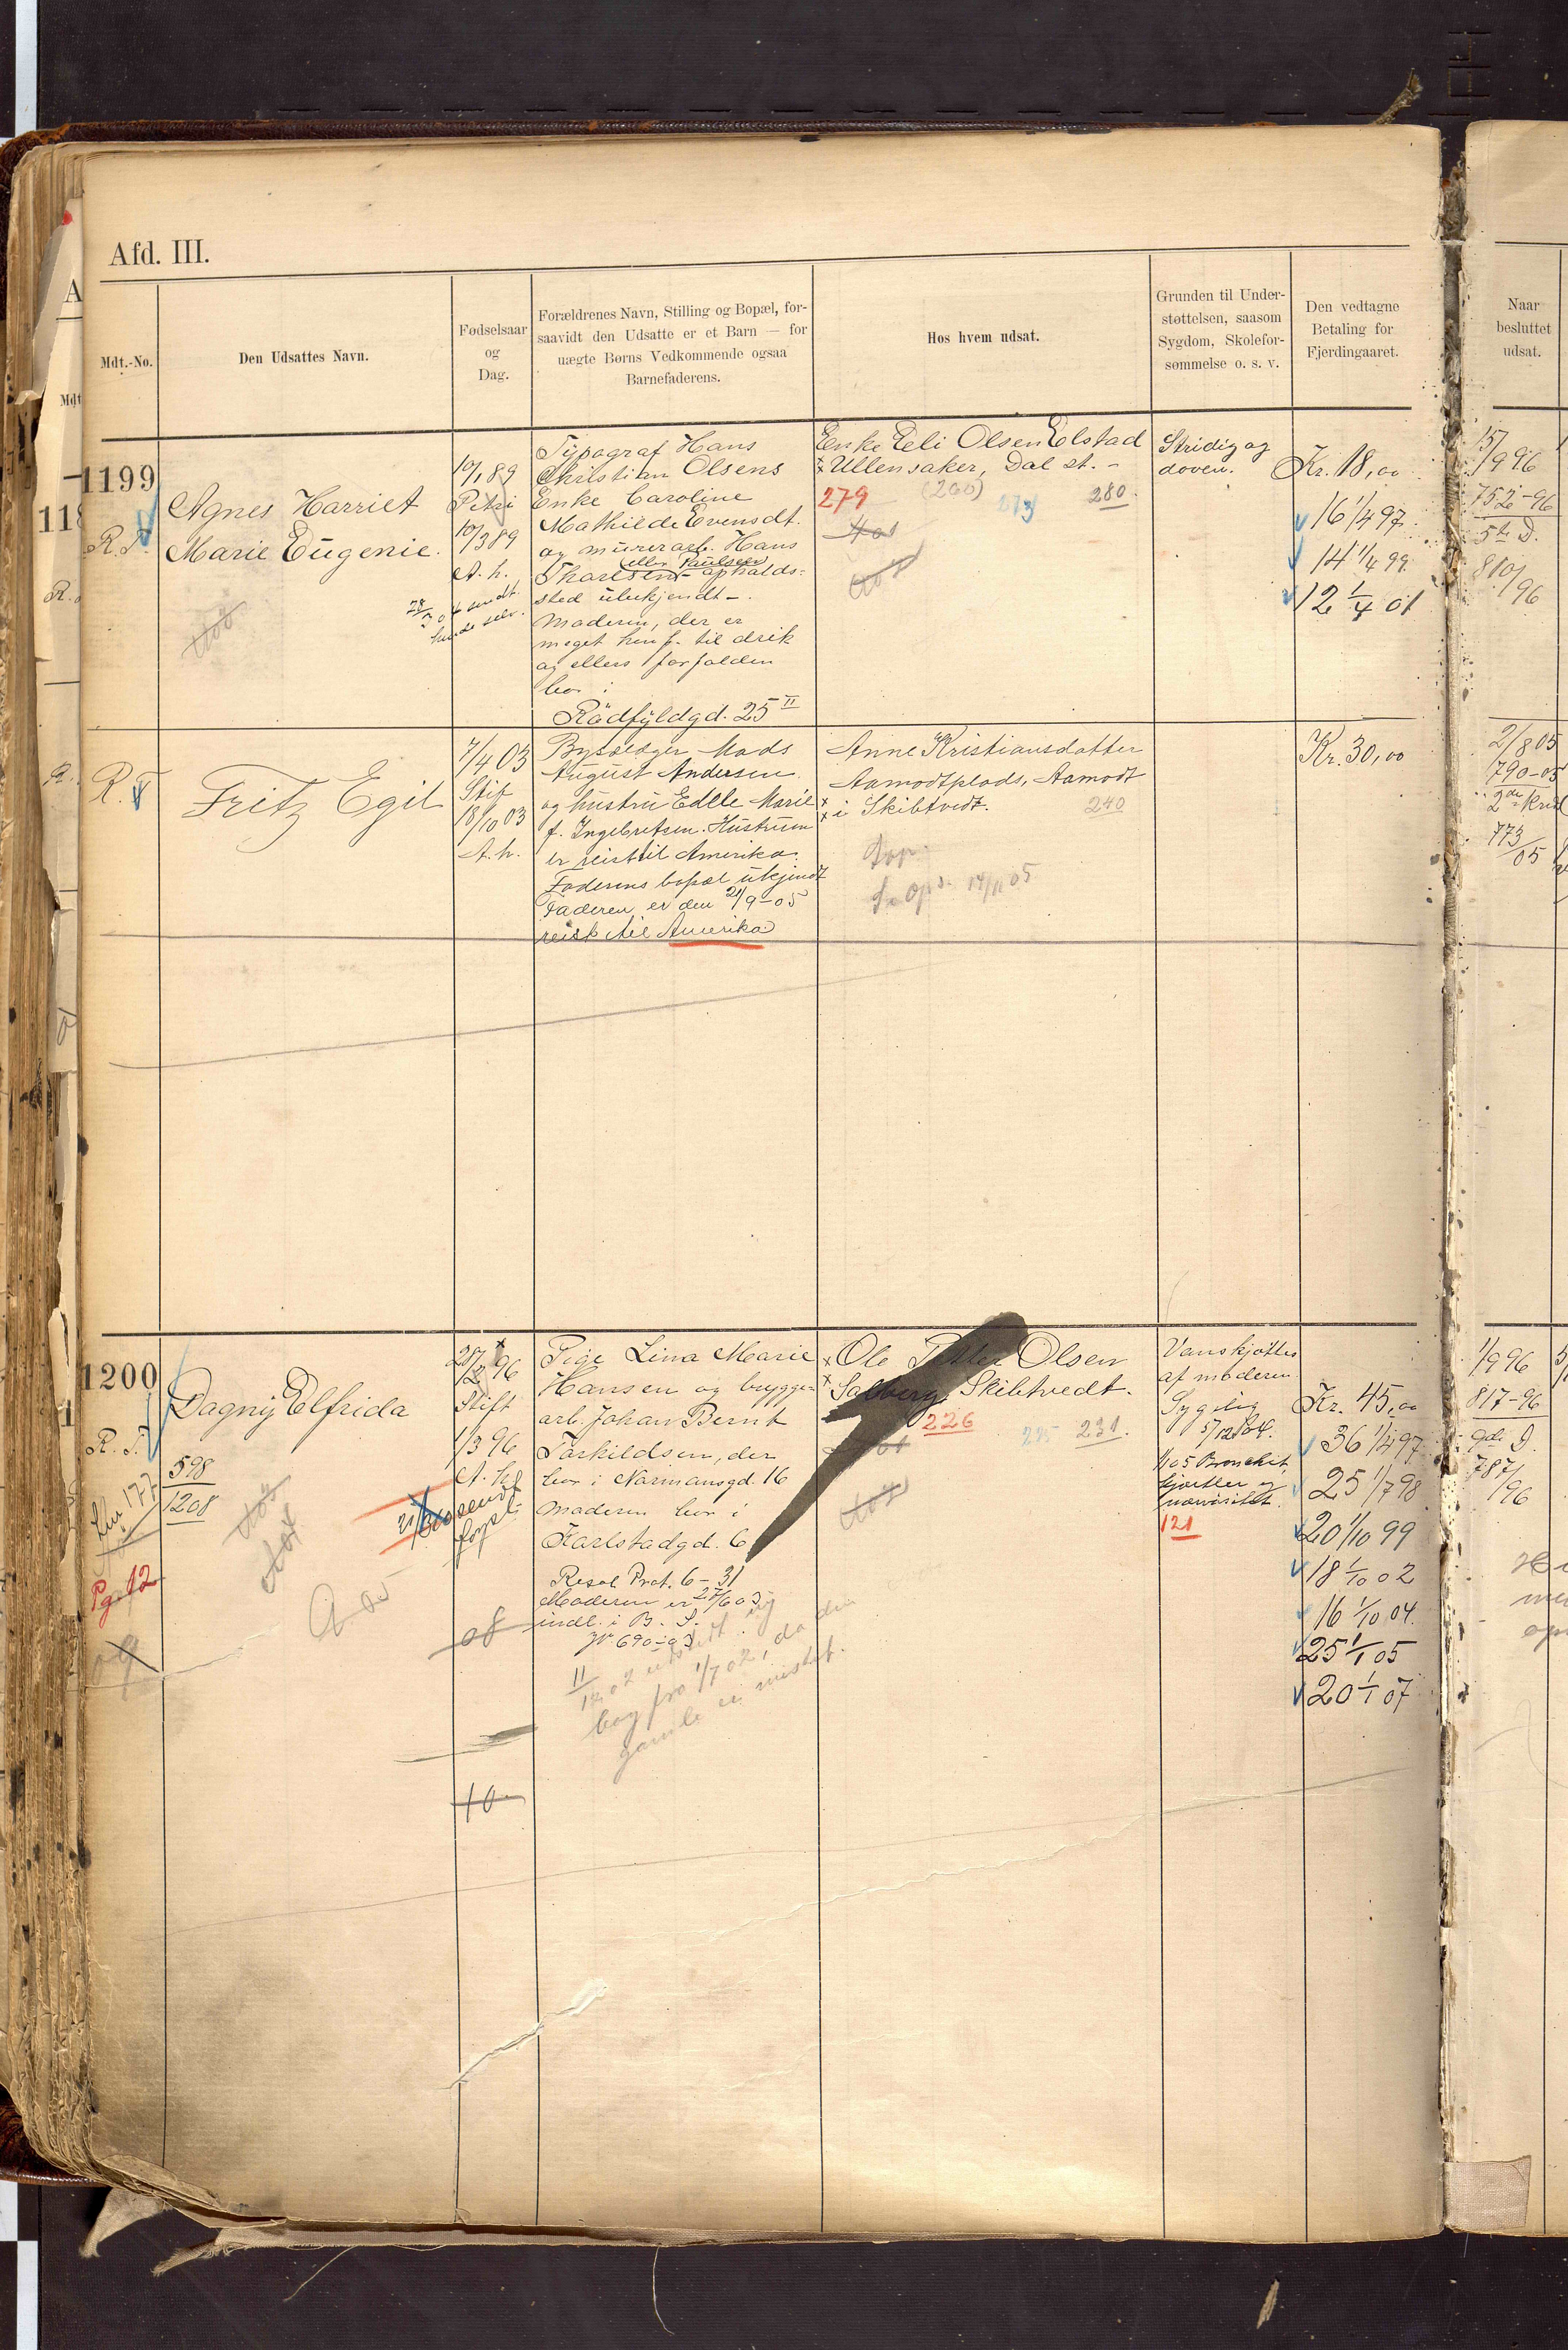 Afd. III.
Mdt.-No.
Den Udsattes Navn.
Fødselsaar
og
Dag.
Forældrenes Navn, Stilling og Bopæl, for-
saavidt den Udsatte er et Barn — for
uægte Børns Vedkommende ogsaa
Barnefaderens.
Hos hvem udsat.
Grunden til Under-
støttelsen, saasom
Sygdom, Skolefor-
sømmelse o. s. v.
Den vedtagne
Betaling for
Fjerdingaaret.
Naar
besluttet
udsat.
1199
R. T.
Agnes Harriet
Marie Eugenie.
10/1 89
Petri
10/3 89
A. h.
Typograf Hans
Christian Olsens
Enke Caroline
Mathilde Evensdt.
og murerarb. Hans
eller Paulsen
Tharlsen - opholds-
sted ubekjendt -
Moderen, der er
meget henf. til drik
og ellers forfalden
bor i
Rådfyldgd. 25 II
Enke Eli Olsen Elstad
Ullensaker, Dal st. -
279 (260) 273 280.
Stridig og
doven.
Kr. 18,00
16 1/4 97.
14 1/4 99.
12 1/4 01
15/9 96
752-96
5te D.
810/96
R. T.
Fritz Egil
7/4 03
Stif
18/10 03
A. h.
Bysælger Mads
August Andersen
og hustru Edle Marie
f. Ingebretsen. Hustruen
er reist til Amerika.
Faderens bopæl ukjendt
Faderen er den 21/9-05
reist til Amerika
Anne Kristiansdatter
Aamodtplads, Aamodt
i Skibtvedt.
240
14/11 05
Kr. 30,00
2/8 05
790-05
773/05
1200
R. T.
Dagny Elfrida
598
1208
177
Pg. 12
09
28/2 96
Stift
1/3 96
A. h.
08
10
Pige Lina Marie
Hansen og brygge-
arb. Johan Bernt
Torkildsen, der
bor i Normansgd. 16
Moderen bor i
Karlstadgd. 6
Resol. Prot. 6-31
Moderen er 27/6 03
indl. i B. S.
Jr 690-03
11/12 02 udstedt ny
bog fra 1/7 02, da den
gamle er mistet.
Ole Petter Olsen
Solberg, Skibtvedt.
226 225 231.
Vanskjøttes
af moderen
Sygelig
5/12 04.
1/1 05 Bronchit,
kjertler og
nervøsitet.
121
Kr. 45,00
36 1/4 97
25 1/7 98
20 1/10 99
18 1/10 02
16 1/10 04.
25 1/1 05
20 1/1 07
1/9 96
817-96
9de D.
787/96